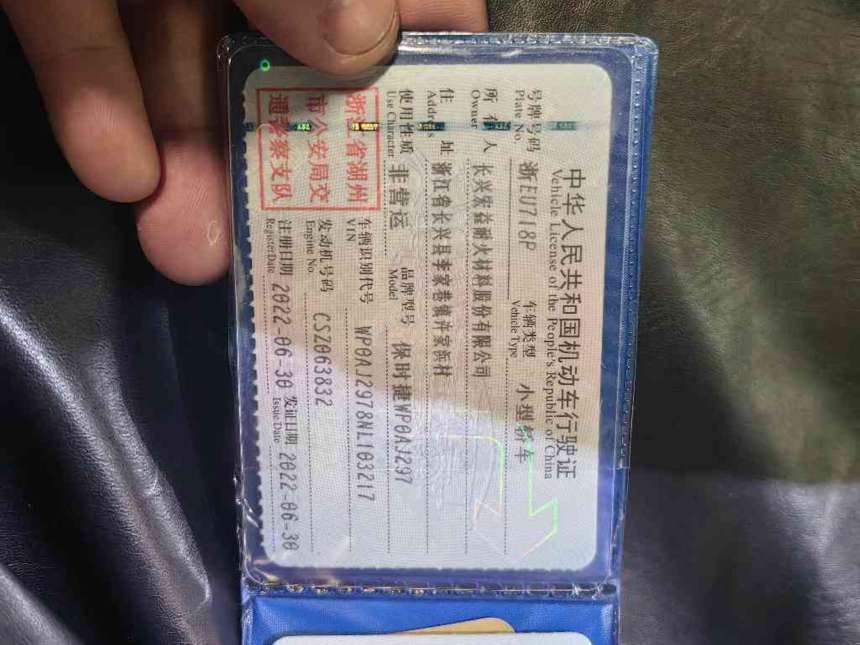 中华人民共和国机动车行驶证
Vehicle License of the People's Republic of China
号牌号码 浙EU718P 车辆类型 小型轿车
Plate No. Vehicle Type
所有人 长兴宏益耐火材料股份有限公司
Owner
住址 浙江省长兴县李家巷镇许家浜村
Address
使用性质 非营运 品牌型号 保时捷WP0AJ297
Use Character Model
浙江省湖州
市公安局交
通警察支队
车辆识别代号 WP0AJ2978NL103217
VIN
发动机号码 CSZ063832
Engine No.
注册日期 2022-06-30 发证日期 2022-06-30
Register Date Issue Date